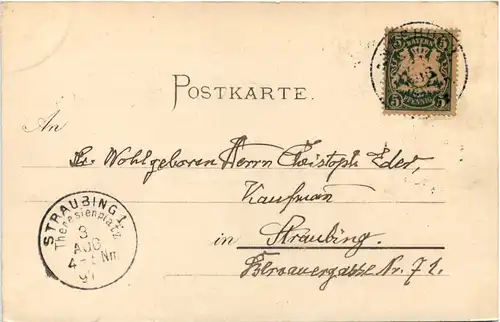 5 BAYERN 5
5 PFENNIG 5
POSTKARTE.
An
Sr. Wohlgeboren Herrn Christoph Eder,
Kaufman
in Straubing.
Bernauergasse Nr. 72.
STRAUBING 1.
Theresienplatz
3
AUG
Nm
97